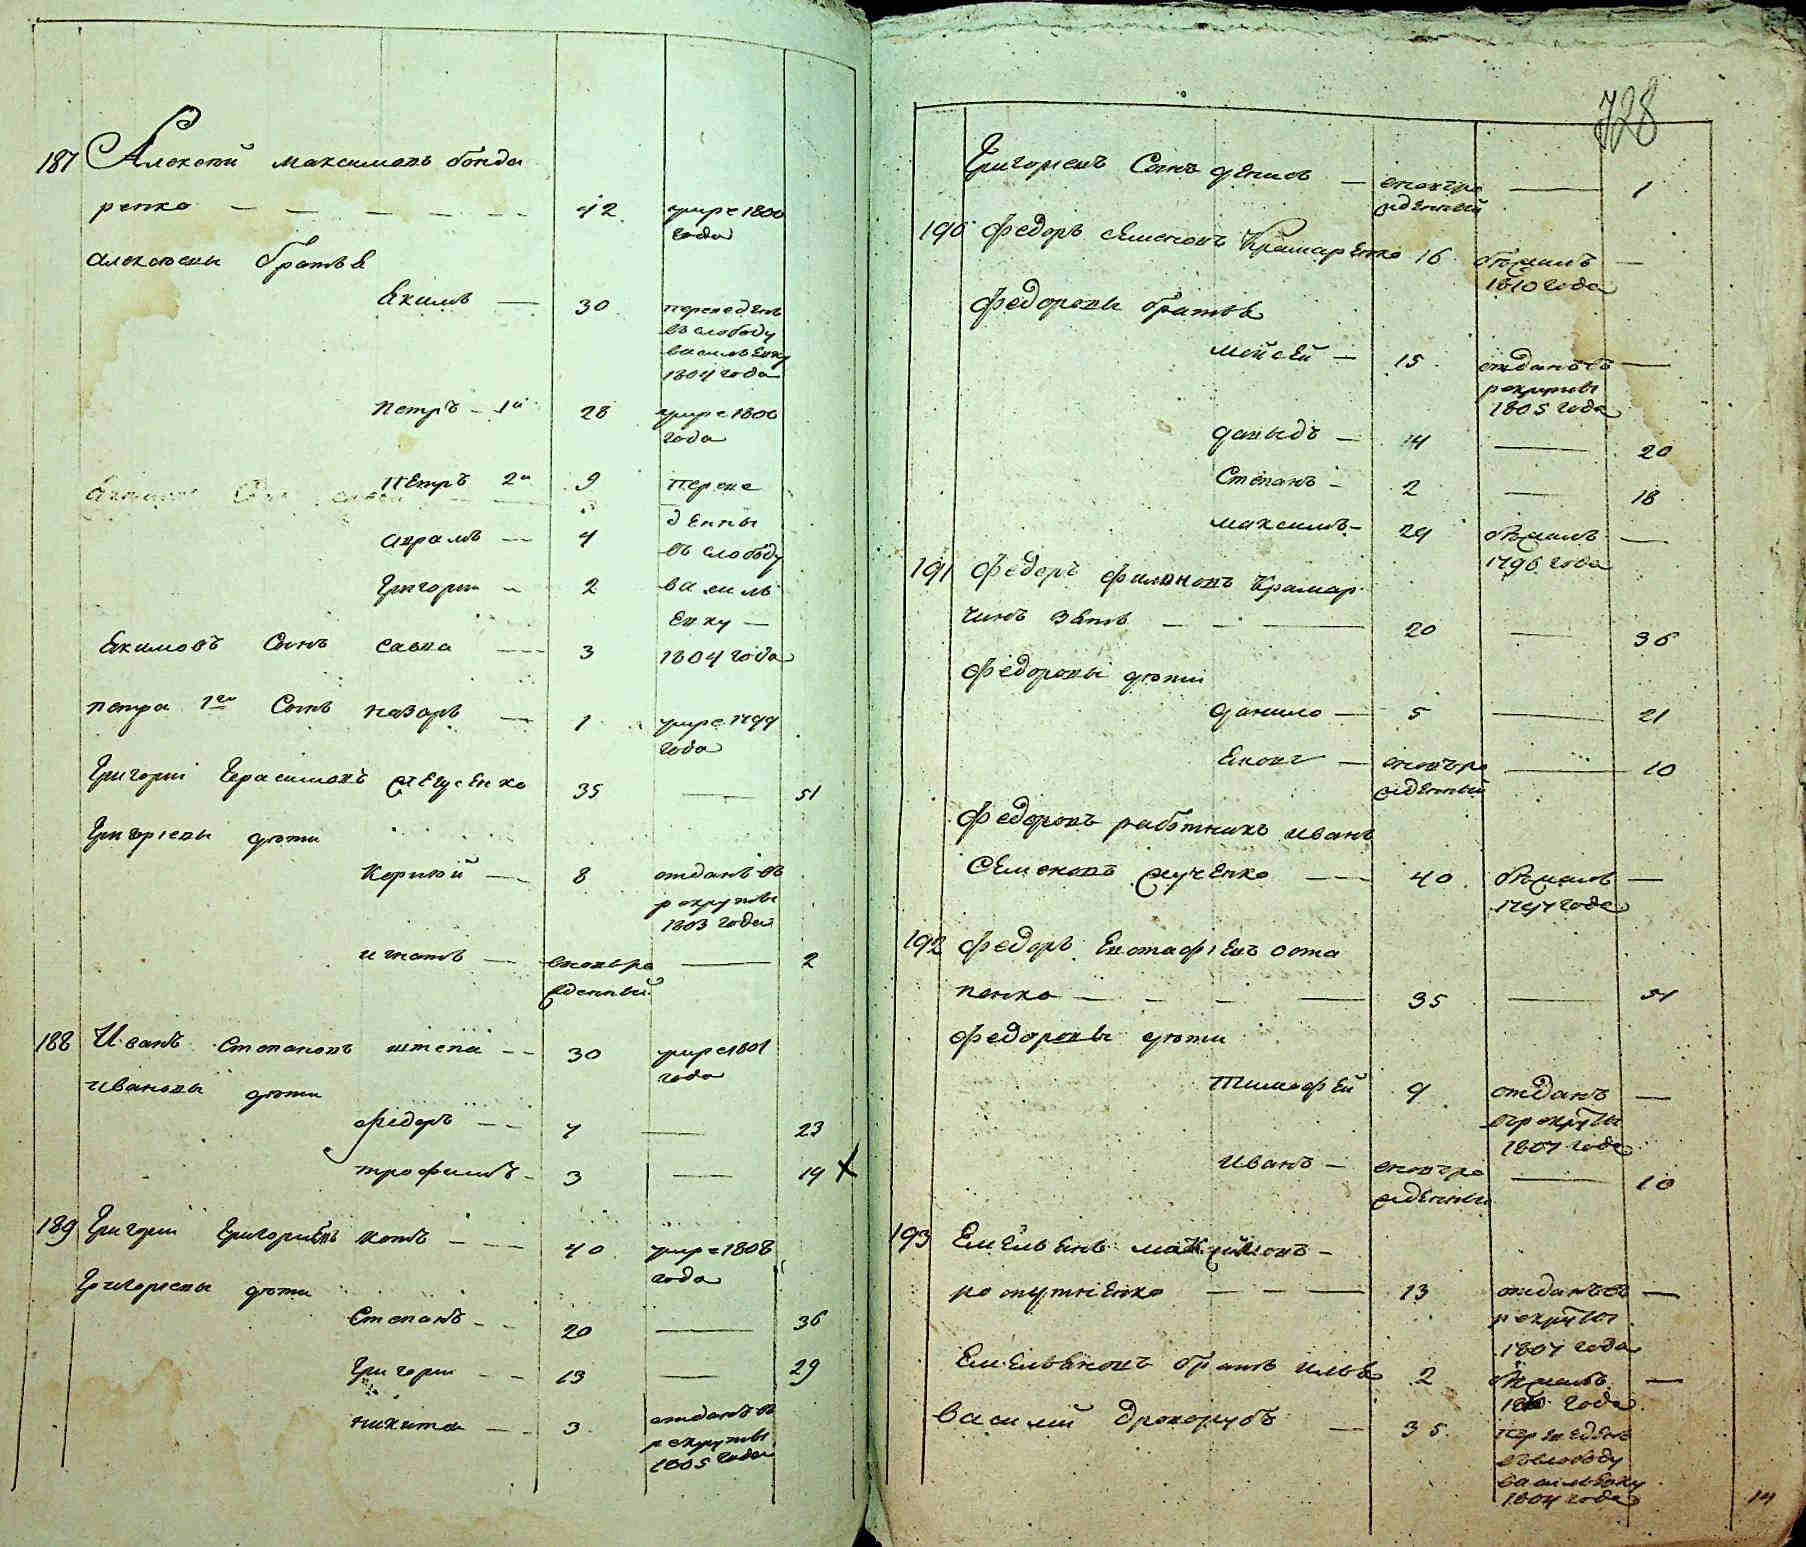 187 Алексей Максимовъ бонда
ренко — 42 умре 1800
года
Алексеевы братья
Якимъ — 30 переведенъ
въ слободу
васильевку
1804 года
Петръ 1й 28 умре 1800
года
Петръ 2й 9 переве
дены
Аврамъ — 4 въ слободу
Григорий — 2 василь
евку —
Якимовъ сынъ савва — 3 1804 года
Петра 1го сынъ Назаръ — 1 умре 1799
года
Григорий Герасимовъ 35 — 51
Григориевы дѣти
Корнѣй — 8 отданъ въ
рекруты
1803 года
Игнатъ — вновьро — 2
жденный
188 Иванъ Степановъ штепа — 30 умре 1801
года
Ивановы дѣти
Федоръ — 7 — 23
трофимъ — 3 — 19 х
189 Григорий Григориевъ котъ — 40 умре 1808
года
Григориевы дѣти
Степанъ — 20 — 36
Григорий — 13 — 29
никита — 3 отданъ въ
рекруты
1805 года
728
Григориевъ сынъ денисъ — вновьро — 1
жденный
190 Федоръ семеновъ Крамаренко 16 бѣжалъ —
1810 года
Федоровы братья
мойсей — 15 отданъ въ —
рекруты
1805 года
давыдъ — 4 — 20
Степанъ — 2 — 18
максимъ — 29 бѣжалъ —
1796 года
191 Федоръ Филоновъ Крамар
чинъ зять — 20 — 36
Федоровы дѣти
данило — 5 — 21
Яковъ — вновьро — 10
жденный
Федоровъ работникъ иванъ
Семеновъ — 40 бѣжалъ —
1797 года
192 Федоръ Евстафіевъ оста
пенко — 35 — 51
Федоровы дѣти
тимофей 9 отданъ —
въ рекруты
1807 года
иванъ — вновьро — 10
жденный
193 Емельянъ максимовъ —
13 отданъ въ —
рекруты
1807 года
Емельяновъ братъ илья 2 бѣжалъ —
года
василий дрокорубъ — 35 переведенъ
въ слободу
васильевку
1804 года
14